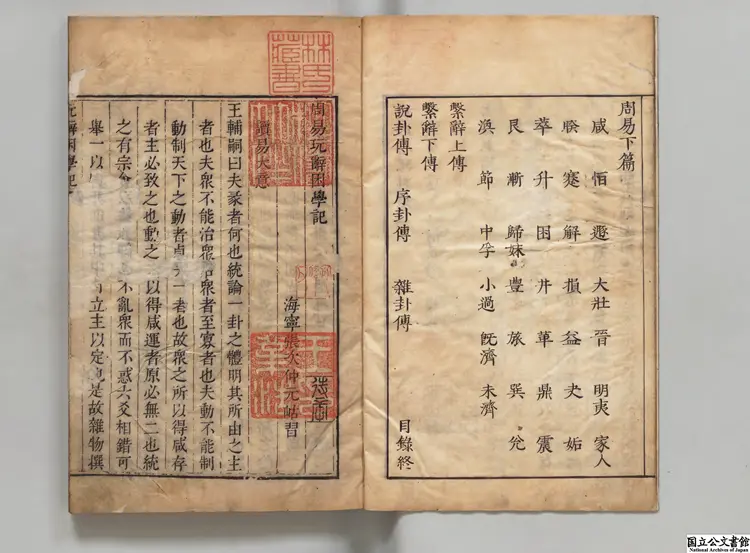 周易下篇
咸 恒 遯 大壯 晉 明夷 家人
睽 蹇 解 損 益 夬 姤
萃 升 困 井 革 鼎 震
艮 漸 歸妹 豐 旅 巽 兌
渙 節 中孚 小過 旣濟 未濟
繫辭上傳
繫辭下傳
說卦傳 序卦傳 雜卦傳 目錄終
林氏藏書
周易玩辭困學記
海寧張次仲元岵習
讀易大意
王輔嗣曰夫彖者何也統論一卦之體明其所由之主
者也夫衆不能治衆治衆者至寡者也夫動不能制
動制天下之動者貞夫一者也故衆之所以得咸存
者主必致之也動之 以得咸運者原必無二也統
之有宗會 不亂衆而不惑六爻相錯可
舉一以 立主以定也是故雜物撰
国立公文書館
National Archives of Japan